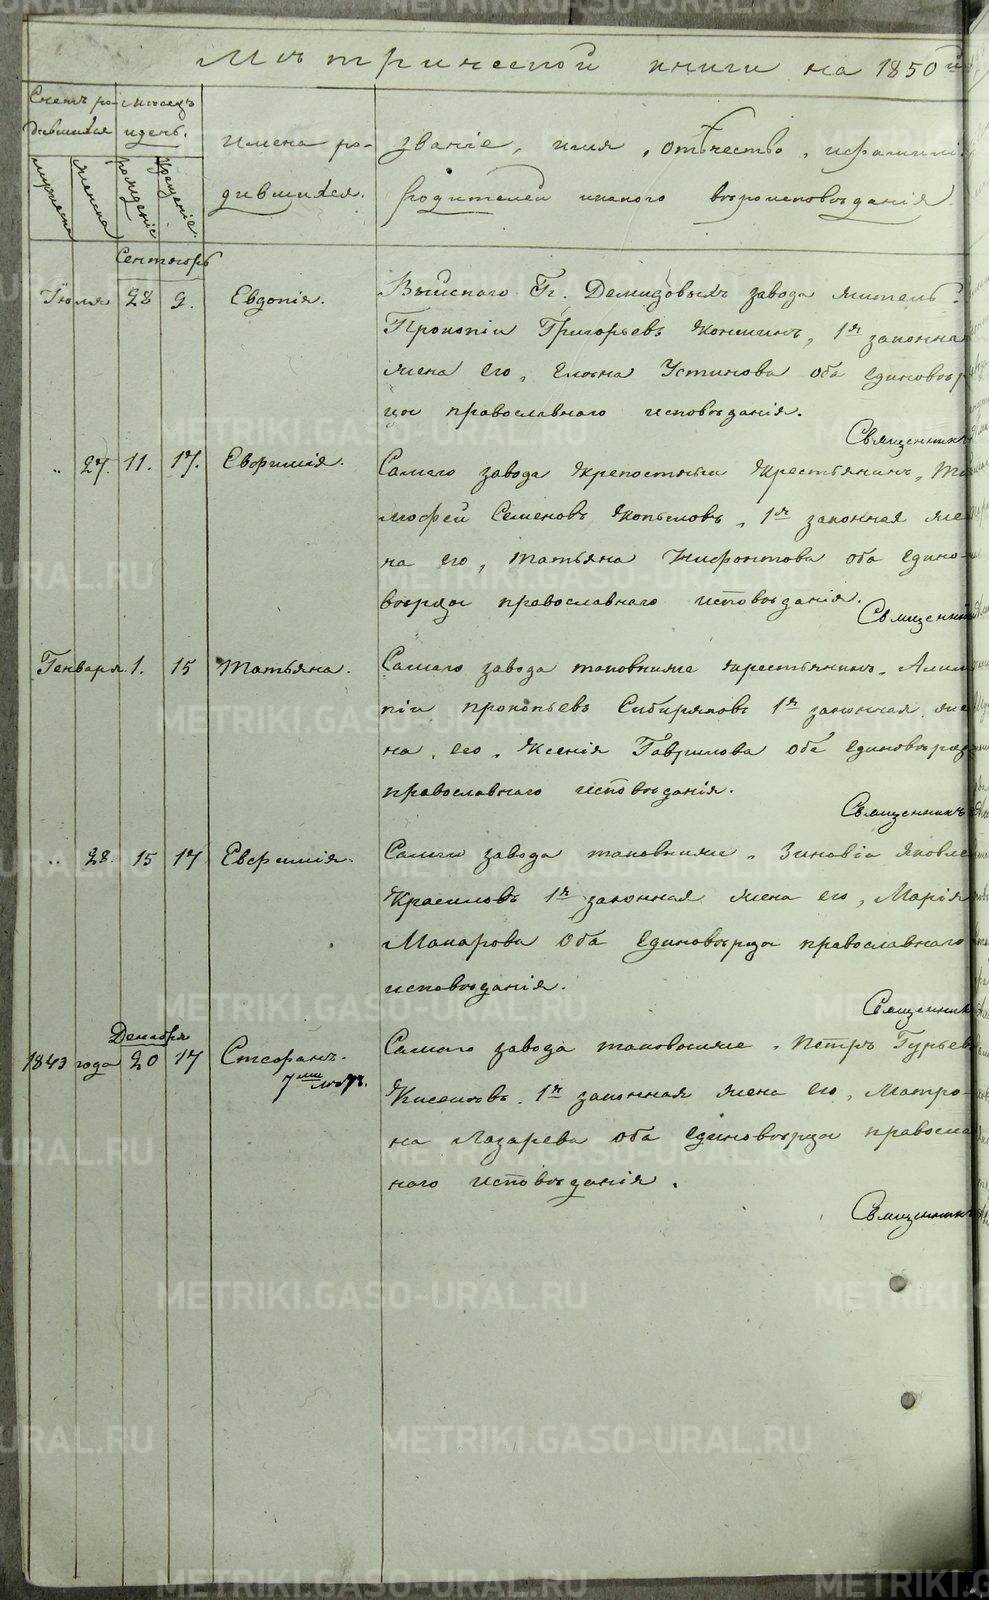 Метрической книги на 1850й
Счетъ ро- Месецъ
дившихся и день.
мужеска женска рождение крещение
имена ро- звание, имя, отчество, и фамилия
дившихся. Родителей и какого вѣроисповѣдания.
Сентябрь
Июля 28 2. Евдокия. Выйскаго Гг. Демидовыхъ завода житель
Прокопий Григорьевъ Коншинъ, 1я законная
жена его, Елена Устинова оба единовѣр
цы православнаго исповѣдания.
Священникъ
" 27. 11. 17. Евфимия. Самаго завода крепостный крестьянинъ, Ти
мофей Семеновъ Копыловъ, 1я законная же
на его, Татьяна Нифонтова оба едино-
вѣрцы православнаго исповѣдания.
Священникъ
Генваря 1. 15 Татьяна. Самаго завода таковыйже крестьянинъ, Алим
пий Прокопьевъ Сибиряковъ 1я законная же
на его, Ксения Гаврилова оба единовѣрцы
православнаго исповѣдания.
Священникъ
" 28. 15 17 Евфимия. Самаго завода таковыйже, Зиновий Яковле
Красиловъ 1я законная жена его, Мария
Макарова оба единовѣрцы православнаго
исповѣдания.
Священник
Декабря
1843 года 20 17 Стефанъ. Самаго завода таковыйже, Петръ Гурьев
7ми лѣтъ. Киселевъ, 1я законная жена его, Матро-
на Лазарева оба единовѣрцы правосла
наго исповѣдания.
Священникъ
METRIKI.GASO-URAL.RU